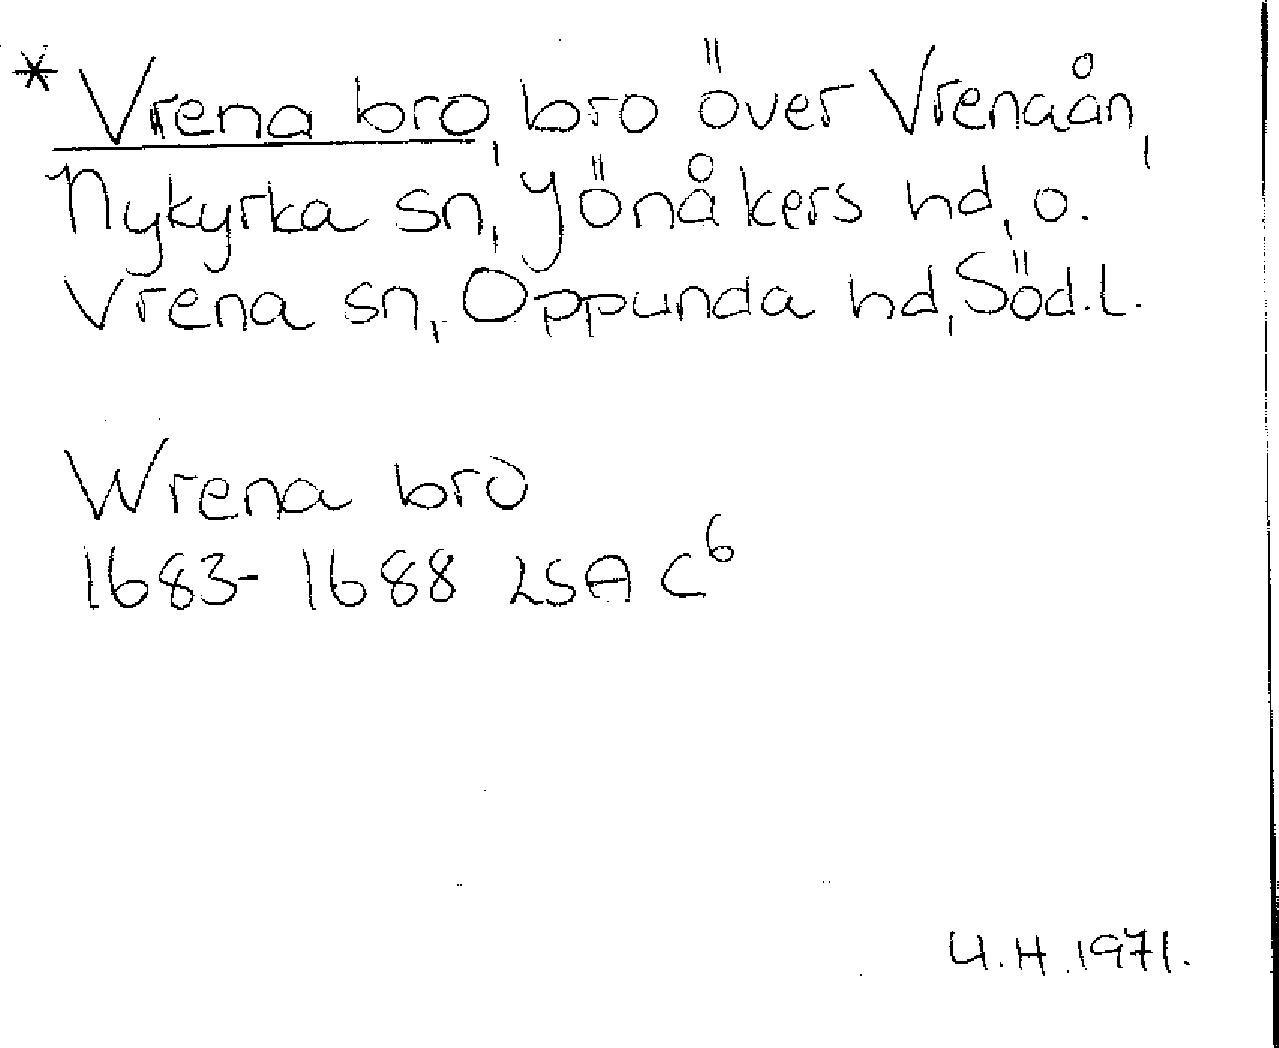 * Vrena bro, bro över Vrenaån,
Nykyrka sn, Jönåkers hd, o.
Vrena sn, Oppunda hd, Söd.l.
Wrena bro
1683-1688 LSA C⁶
U.H. 1971.